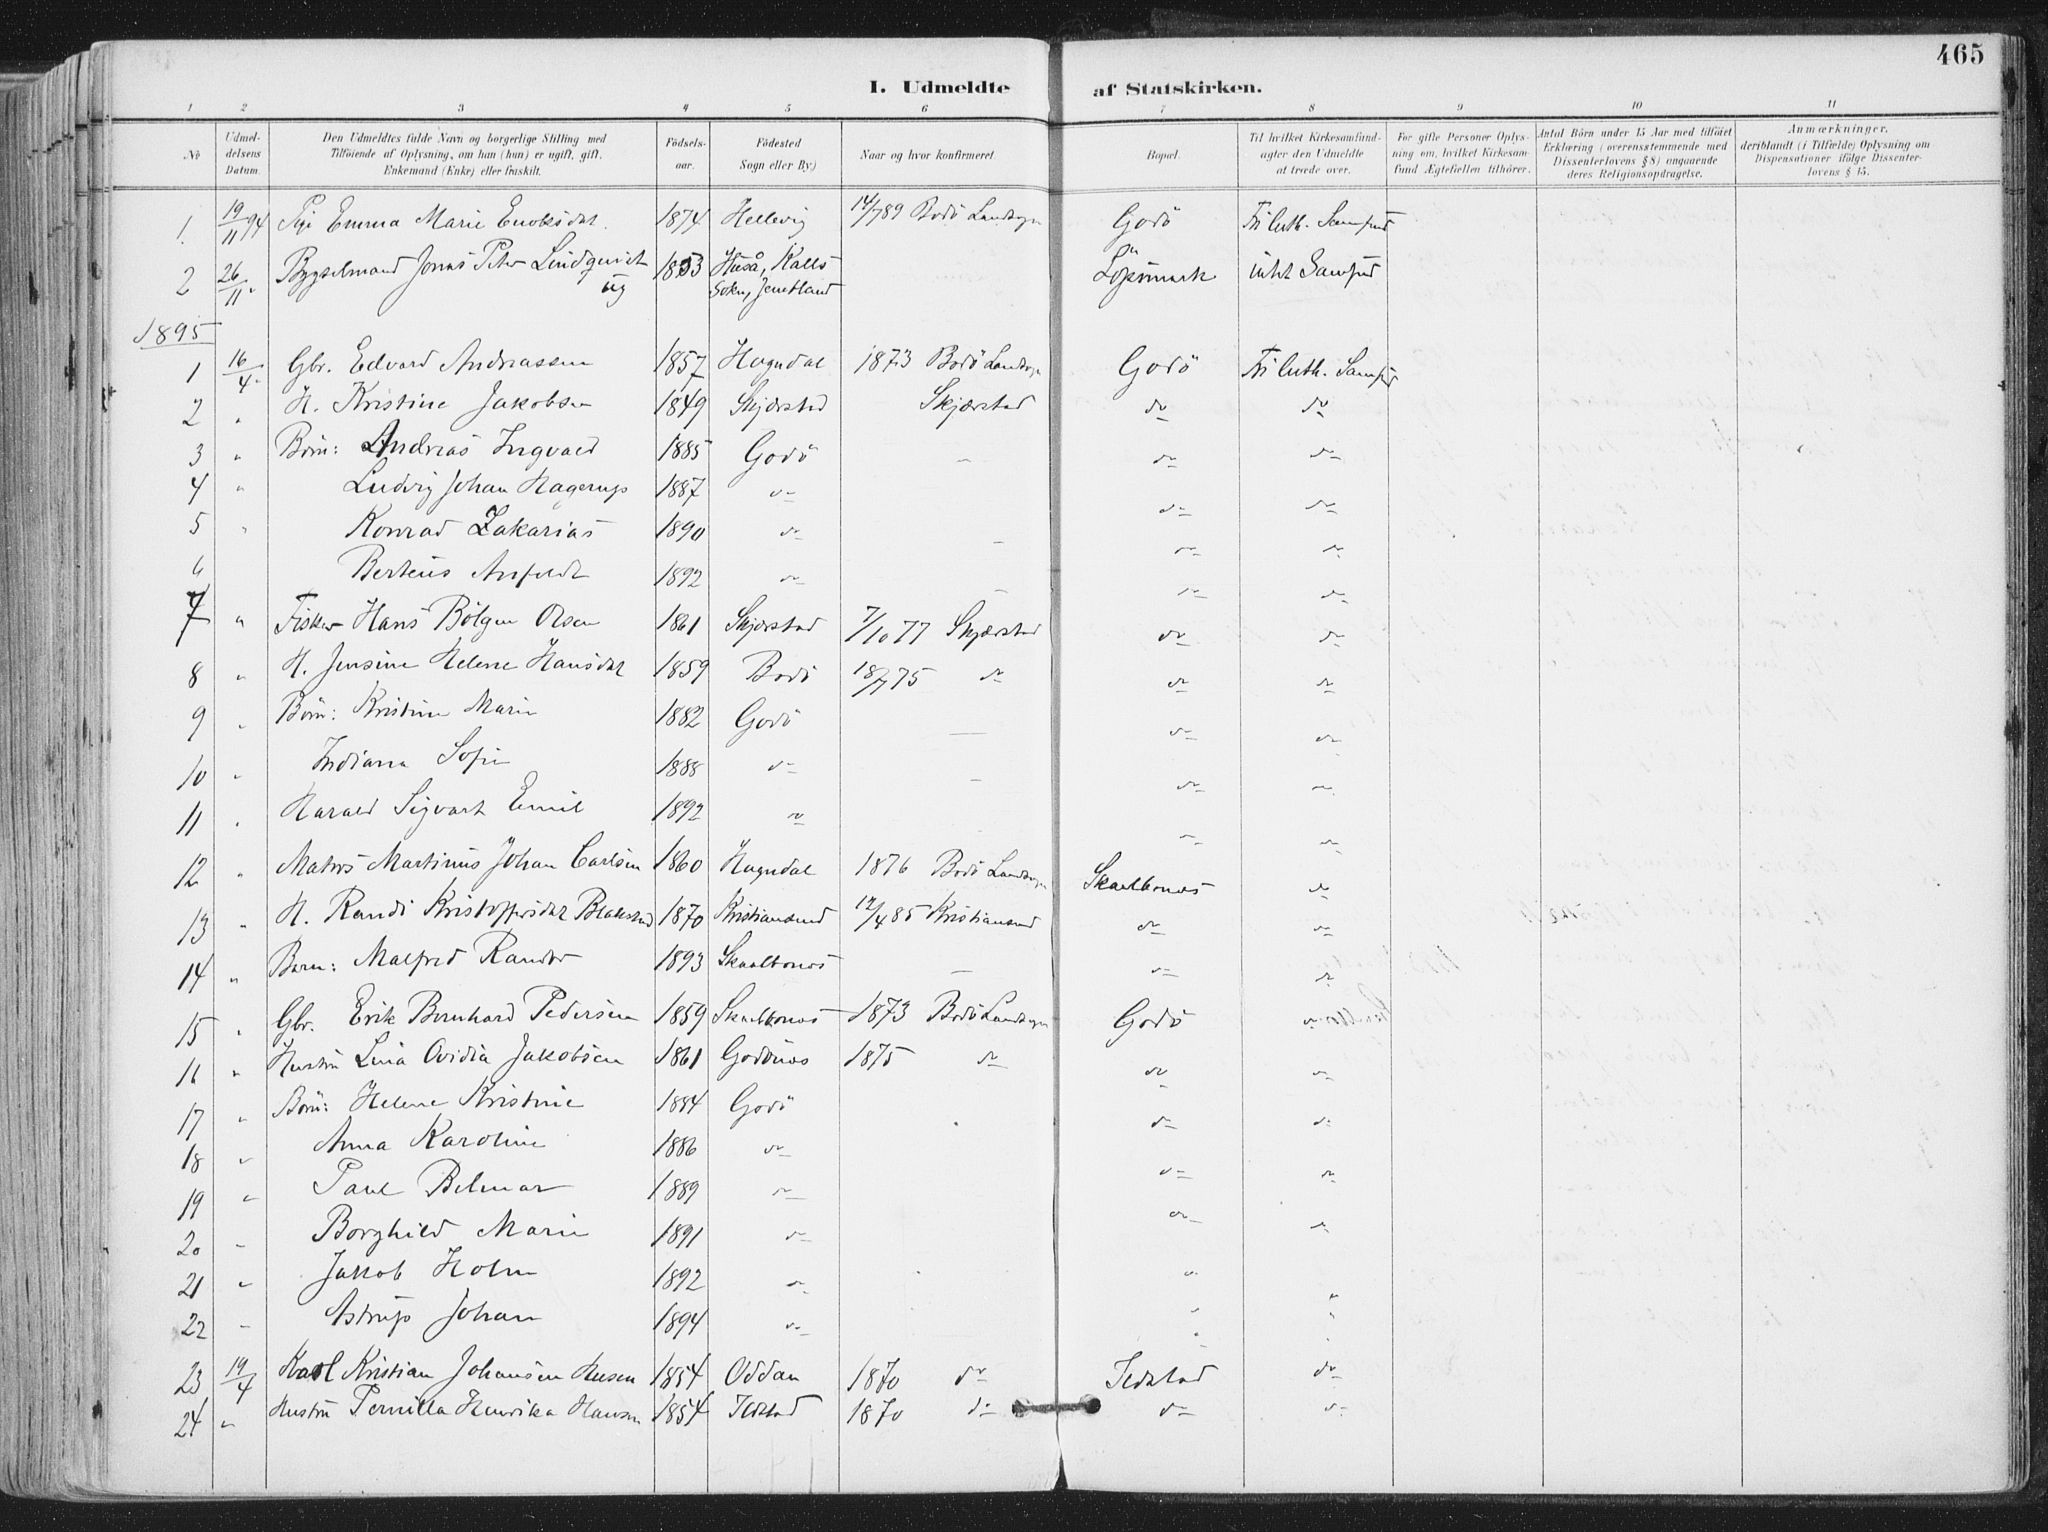 465
I. Udmeldte af Statskirken.
1 2 3 4 5 6 7 8 9 10 11
No
Udmeldelsens Datum.
Den Udmeldtes fulde Navn og borgerlige Stilling med
Tilföiende af Oplysning, om han (hun) er ugift, gift,
Enkemand (Enke) eller fraskilt.
Födselsaar.
Födested
Sogn eller By)
Naar og hvor konfirmeret
Bopæl.
Til hvilket Kirkesamfund
agter den Udmeldte
at træde over.
For gifte Personer Oplysning om, hvilket Kirkesamfund Ægtefællen tilhörer.
Antal Börn under 15 Aar med tilföiet
Erklæring (overensstemmende med
Dissenterlovens § 8) angaaende
deres Religionsopdragelse.
Anmærkninger,
deriblandt (i Tilfælde) Oplysning om
Dispensationer ifölge Dissenterlovens § 15.
1. 19/11 94 Pige Emma Marie Enoksdat. 1874 Hellevig 14/7 89 Bodö Landsogn Godö Fri luth. Samfund
2 26/11 " Bygselmand Jonas Peter Lindqvist ug 1853 Huså, Kalls Sokn, Jemtland Löpsmark intet Samfund
1895
1 16/4 " Gbr. Edvard Andreassen 1857 Hogndal 1873 Bodö Landsogn Godö Fri luth. Samfund
2 " H. Kristine Jakobsen 1849 Skjærstad Skjærstad do do
3 " Börn: Andreas Ingvald 1885 Godö — do do
4 " Ludvig Johan Hagerup 1887 do do do
5 " Konrad Zakarias 1890 do — do do
6 Berteus Anfeldt 1892 do — do do
7 " Fisker Hans Bölgen Olsen 1861 Skjerstad 7/10 77 Skjærstad do do
8 " H. Jensine Helene Hansdat 1859 Bodö 18/7 75 do do do
9 " Börn: Kristine Marie 1882 Godö — do do
10 " Indiana Sofie 1888 do — do do
11 " Harald Sigvart Emil 1892 do do do
12 " Matros Martinus Johan Carlsen 1860 Hogndal 1876 Bodö Landsogn Skaalbones do
13 " H. Randi Kristoffersdat Blakstad 1870 Kristiansund 12/4 85 Kristiansund do do
14 " Barn: Malfred Randor 1893 Skaalbones — do do
15 " Gbr. Erik Bernhard Pedersen 1859 Skaalbones 1873 Bodö Landsogn Godö do
16 " Hustru Lina Ovidia Jakobsen 1861 Godönes 1875 do do do
17 " Börn: Helene Kristine 1884 Godö do do
18 " Anna Karoline 1886 do do do
19 " Paul Bilmar 1889 do do do
20 " Borghild Marie 1891 do do do
21 " Jakob Holm 1892 do do "
22 " Astrup Johan 1894 do " "
23 19/4 Karl Kristian Johansen 1854 Oddan 1870 do Jedstad do
24 " Hustru Pernilla Henrika Hansen 1854 Jedstad 1870 do do do